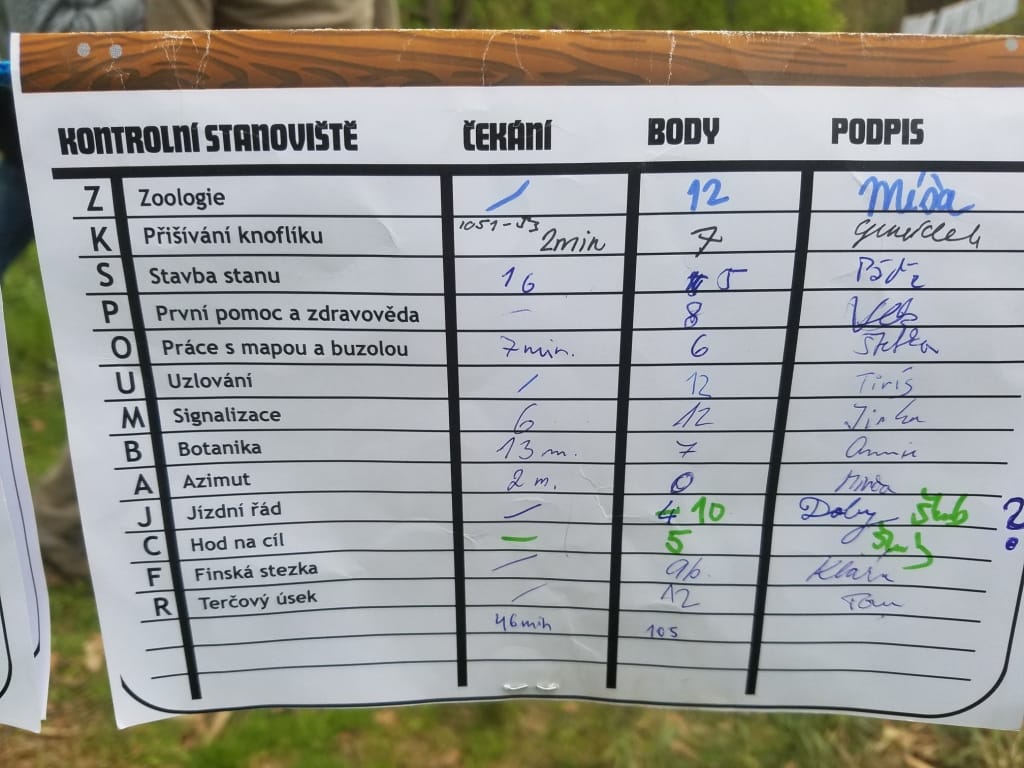 KONTROLNÍ STANOVIŠTĚ ČEKÁNÍ BODY PODPIS
Z Zoologie / 12 Míša
K Přišívání knoflíku 1051-53 2min 7
S Stavba stanu 16 5
P První pomoc a zdravověda - 8
O Práce s mapou a buzolou 7min. 6 Štěpka
U Uzlování / 12
M Signalizace 6 12 Jirka
B Botanika 13 m. 7
A Azimut 2 m. 0
J Jízdní řád / 4 10 Doby ?
C Hod na cíl - 5
F Finská stezka / 9b. Klára
R Terčový úsek / 12 Tom
46min 105